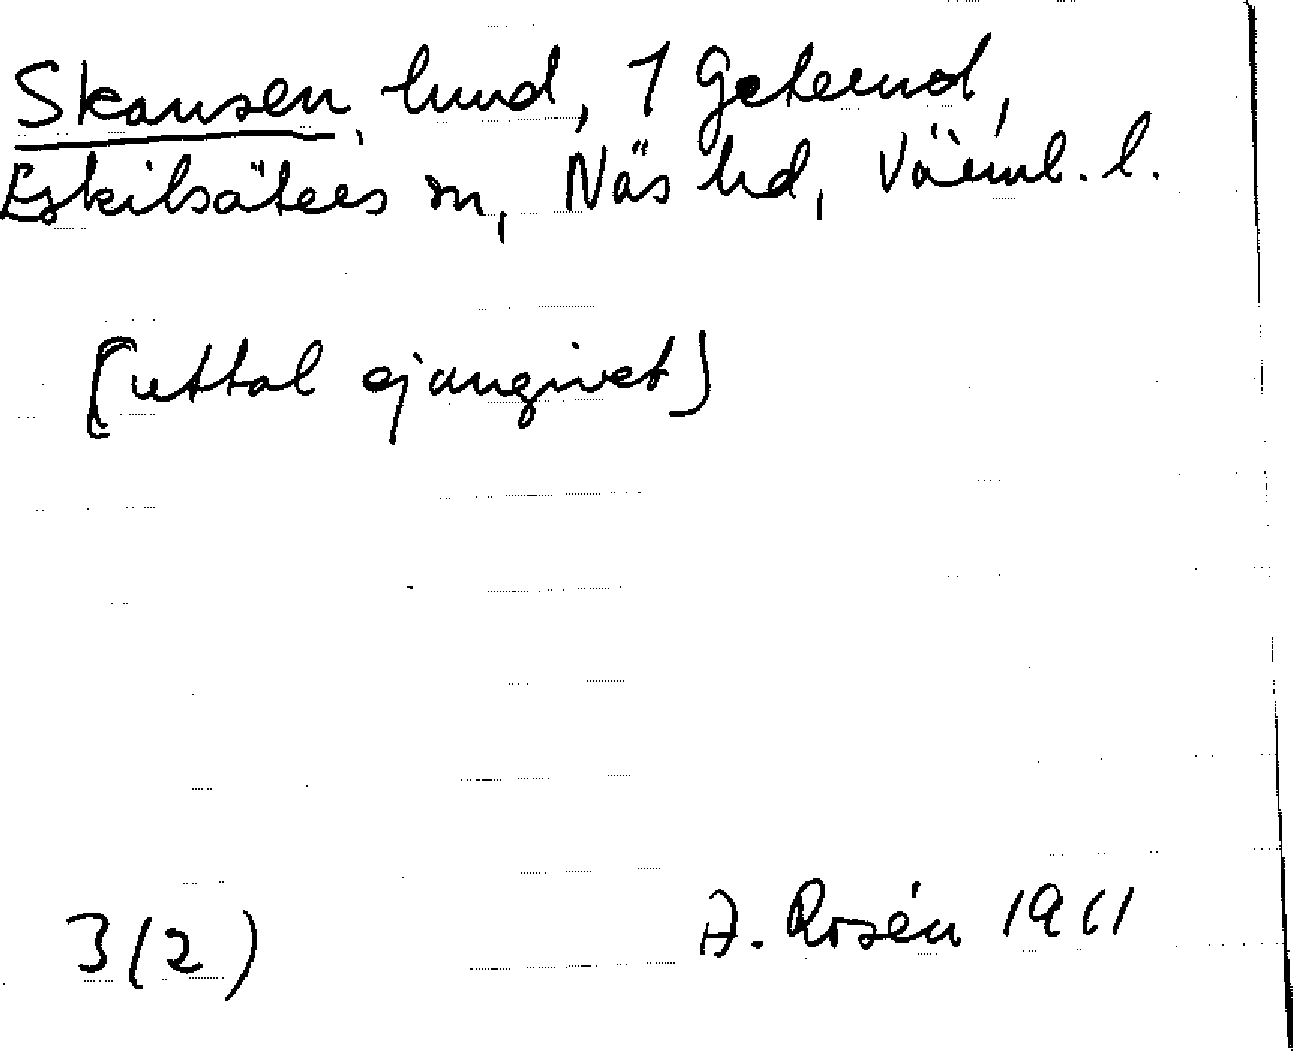 Skansen, hmd, 1 Geterud,
Eskilsäters sn, Näs hd, Värml. l.
[uttal ej angivet]
3(2)
A. Rosén 1911